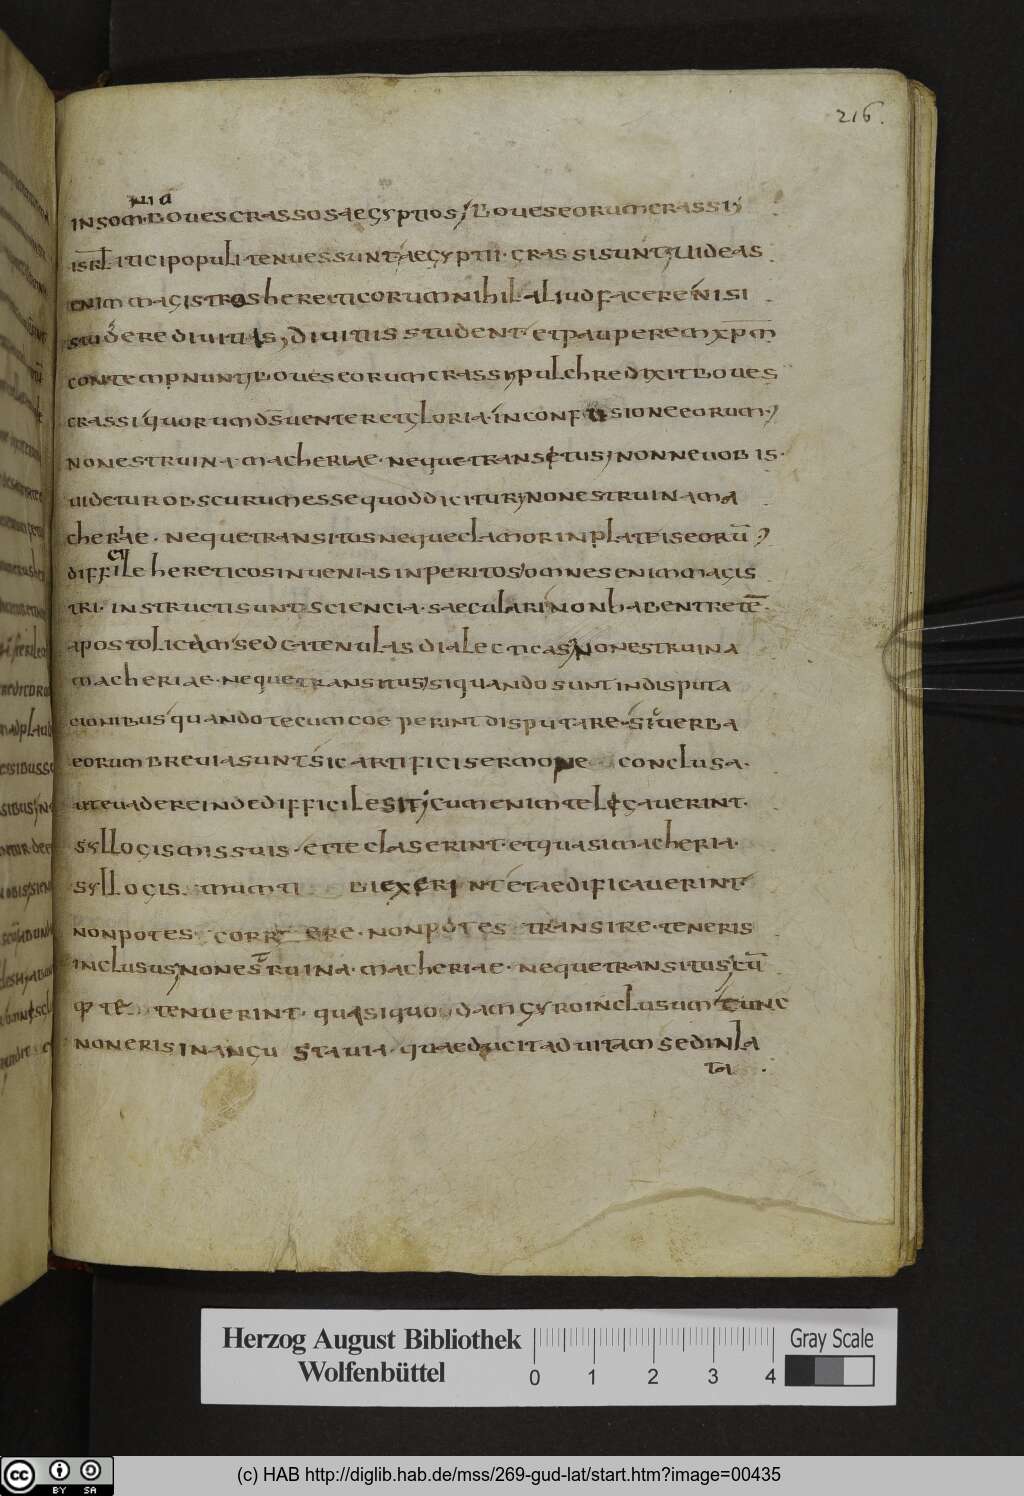 216.
nia
insom·boues crassos aegyptios; boues eorum crassi;
isrl itici populi tenues sunt; aegyptii· crassi sunt; uideas
enim magistros hereticorum nihil aliud facere nisi
studere diuitias; diuitiis student· et pauperem xpm̄
contempnunt; boues eorum crassi; pulchre dixit boues
crassi; quorum ds̄ uenter et gloria· in confusione eorum;
non est ruina macheriae· neque transitus; nonne uobis·
uidetur obscurum esse quod dicitur; non est ruina ma
cheriae· neque transitus neque clamor in plateis eorū;
difficile hereticos inuenias inperitos; omnes enim magis
tri· instructi sunt sciencia· saeculari; non habent retē·
apostolicam; sed catenulas dialecticas; non est ruina
macheriae· neque transitus; si quando sunt in disputa
cionibus; quando tecum coeperint disputare· si uerba
eorum breuia sunt sic artifici sermone conclusa·
ut euadere inde difficile sit; cum enim te ligauerint·
syllogismis suis· et te claserint· et quasi macheria·
syllogis mum ti bi exerint et aedificauerint·
non potes· corr ere· non potes transire· teneris
inclusus; non est ruina· macheriae· neque transitus; cū
te tenuerint· quasi quodam gyro inclusum; tunc
non eris in angusta uia· quae ducit ad uitam sed in la
ta ·
Herzog August Bibliothek
Wolfenbüttel
0 1 2 3 4
Gray Scale
cc BY SA
(c) HAB http://diglib.hab.de/mss/269-gud-lat/start.htm?image=00435